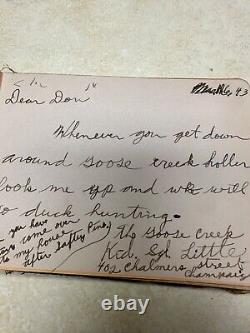 Dear Don
43
Whenever you get down
around Goose creek holler
look me up and we will
go duck hunting.
The Goose creek
Kid. Little
402 Chalmers street
Champaign
you have
come over
to my house
after
© ebay